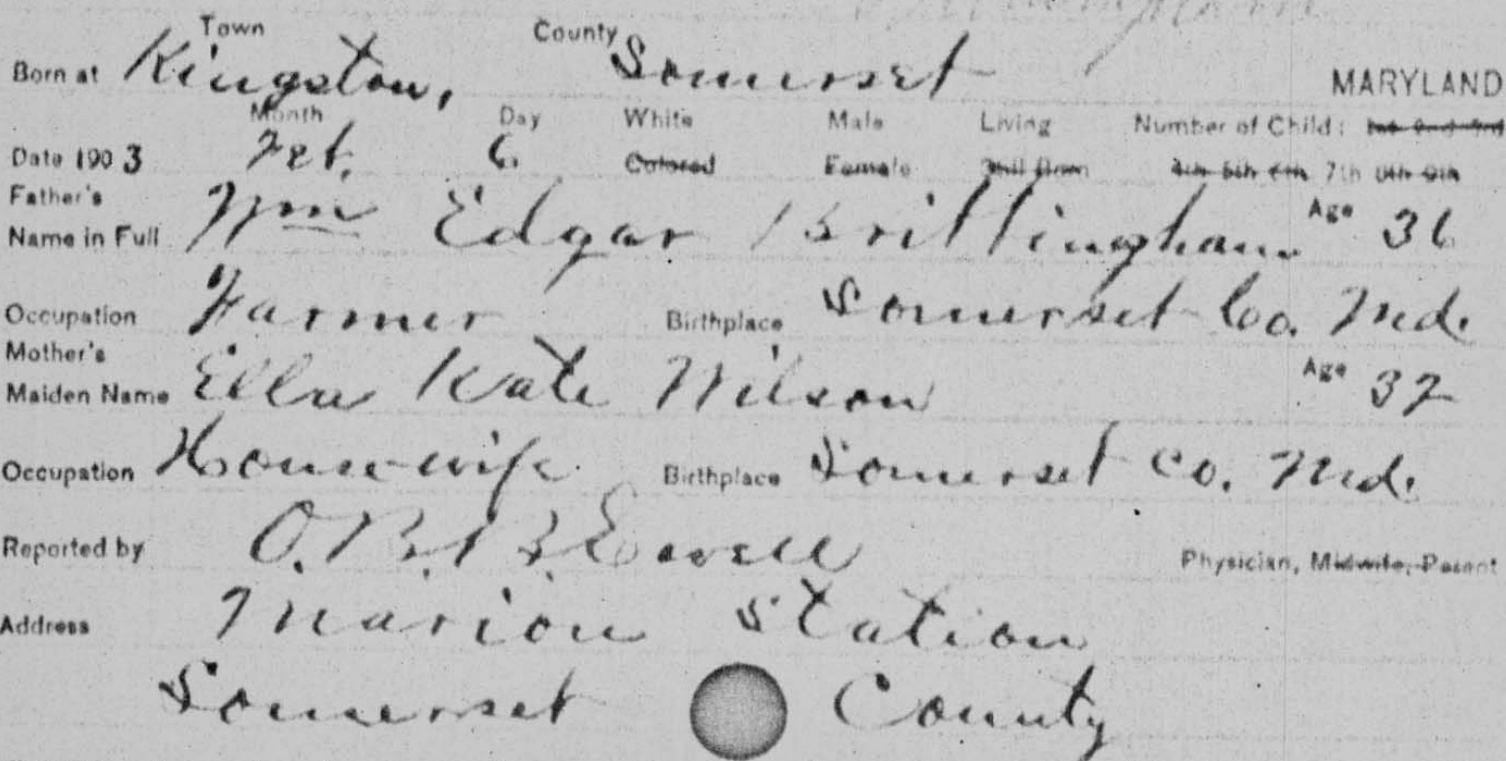 Town County
Born at Kingston, Somerset MARYLAND
Month Day White Male Living Number of Child: 1st 2nd 3rd
Date 1903 Feb. 6 Colored Female Still Born 4th 5th 6th 7th 8th 9th
Father's
Name in Full Wm Edgar Brittingham Age 36
Occupation Farmer Birthplace Somerset Co. Md.
Mother's
Maiden Name Ella Kate Wilson Age 32
Occupation House-wife Birthplace Somerset Co. Md.
Reported by O.B.B. Ewell Physician, Midwife, Parent
Address Marion Station
Somerset County